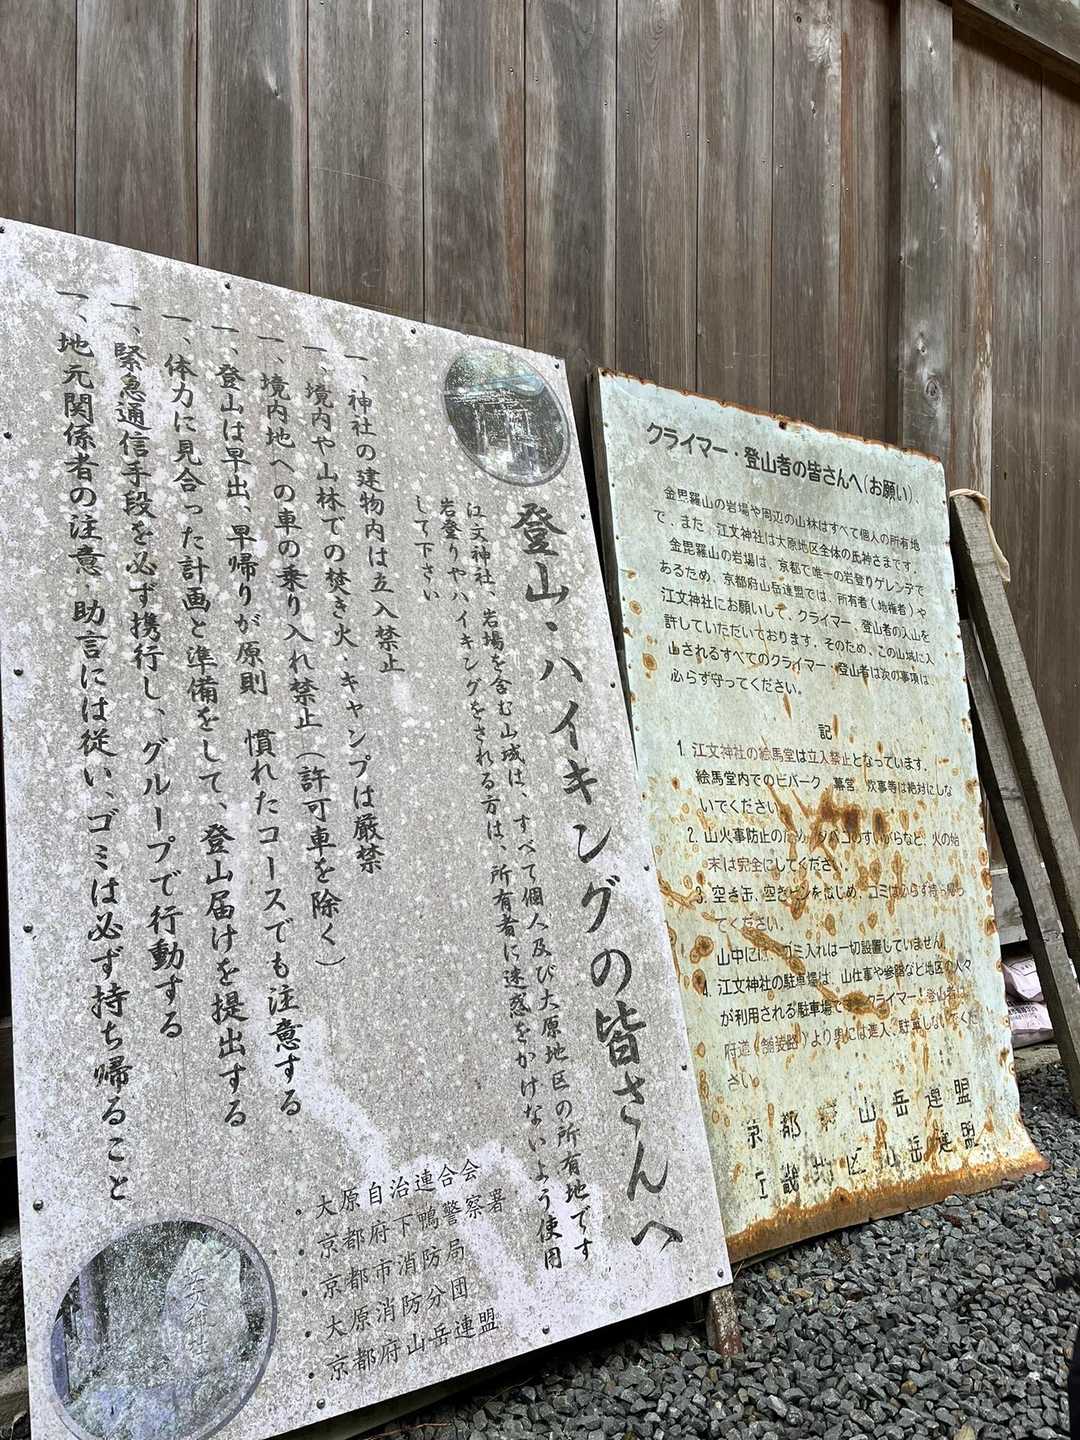 登山・ハイキングの皆さんへ
江文神社、岩場を含む山域は、すべて個人及び大原地区の所有地です
岩登りやハイキングをされる方は、所有者に迷惑をかけないよう使用
して下さい
一、神社の建物内は立入禁止
一、境内や山林での焚き火・キャンプは厳禁
一、境内地への車の乗り入れ禁止（許可車を除く）
一、登山は早出、早帰りが原則 慣れたコースでも注意する
一、体力に見合った計画と準備をして、登山届けを提出する
一、緊急通信手段を必ず携行し、グループで行動する
一、地元関係者の注意 助言には従い、ゴミは必ず持ち帰ること
・大原自治連合会
・京都府下鴨警察署
・京都市消防局
・大原消防分団
・京都府山岳連盟
江文神社
クライマー・登山者の皆さんへ(お願い)
金毘羅山の岩場や周辺の山林はすべて個人の所有地
で、また、江文神社は大原地区全体の氏神さまです。
金毘羅山の岩場は、京都で唯一の岩登りゲレンデで
あるため、京都府山岳連盟では、所有者(地権者)や
江文神社にお願いして、クライマー、登山者の入山を
許していただいております。そのため、この山域に入
山されるすべてのクライマー・登山者は次の事項は、
必らず守ってください。
記
1. 江文神社の絵馬堂は立入禁止となっています。
絵馬堂内でのビバーク、幕営、炊事等は絶対にしな
いでください。
2. 山火事防止のため、タバコのすいがらなど、火の始
末は完全にしてください。
3. 空き缶、空きビンをはじめ、ゴミは必らず持ち帰っ
てください。
山中には、ゴミ入れは一切設置していません。
4. 江文神社の駐車場は、山仕事や参詣など地区の人々
が利用される駐車場です。クライマー、登山者は、
府道(舗装路)より奥には進入、駐車しないでくだ
さい。
京都府山岳連盟
山岳連盟